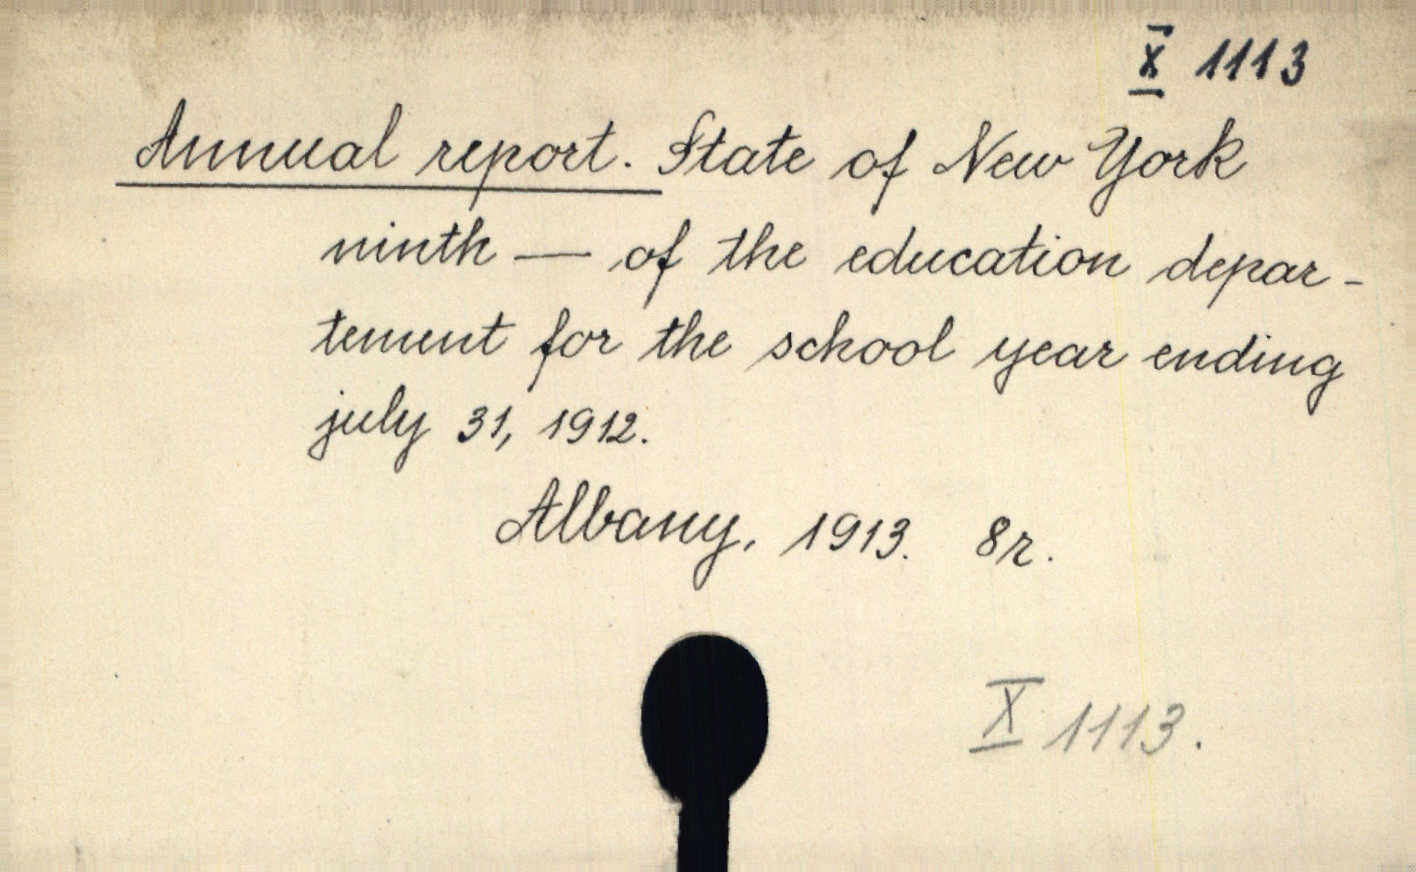 X 1113
Annual report. State of New York
ninth — of the education depar-
tement for the school year ending
july 31, 1912.
Albany, 1913. 8r.
X 1113.